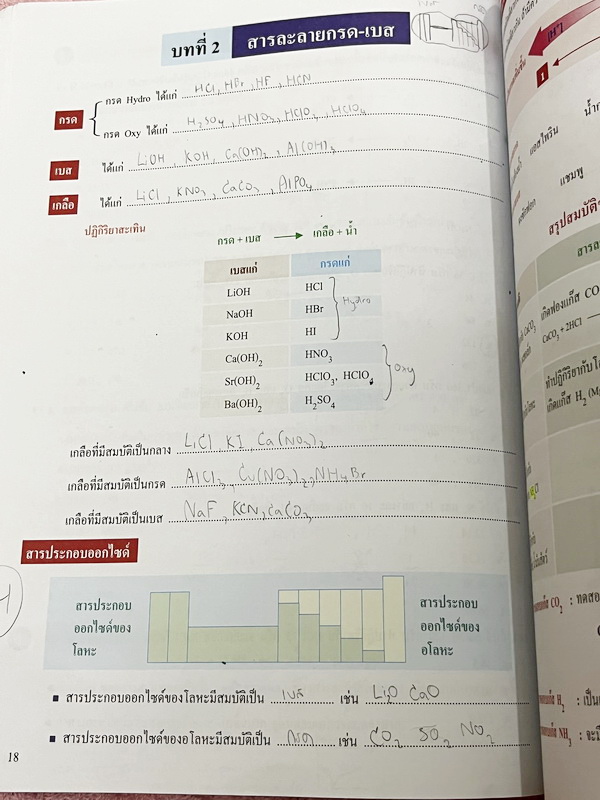 บทที่ 2 สารละลายกรด-เบส
กรด
กรด Hydro ได้แก่ HCl, HBr, HF, HCN
กรด Oxy ได้แก่ H2SO4, HNO3, HClO4, HClO4
เบส ได้แก่ LiOH, KOH, Ca(OH)2, Al(OH)3
เกลือ ได้แก่ LiCl, KNO3, CaCO3, AlPO4
ปฏิกิริยาสะเทิน
กรด + เบส → เกลือ + น้ำ
เบสแก่ กรดแก่
LiOH HCl
NaOH HBr Hydro
KOH HI
Ca(OH)2 HNO3
Sr(OH)2 HClO3, HClO4 Oxy
Ba(OH)2 H2SO4
เกลือที่มีสมบัติเป็นกลาง LiCl, KI, Ca(NO3)2
เกลือที่มีสมบัติเป็นกรด AlCl3, Cu(NO3)2, NH4Br
เกลือที่มีสมบัติเป็นเบส NaF, KCN, CaCO3
สารประกอบออกไซด์
สารประกอบ
ออกไซด์ของ
โลหะ
สารประกอบ
ออกไซด์ของ
อโลหะ
▪ สารประกอบออกไซด์ของโลหะมีสมบัติเป็น เบส เช่น Li2O CaO
▪ สารประกอบออกไซด์ของอโลหะมีสมบัติเป็น กรด เช่น CO2 SO2 NO2
18
1
แอสไพริน
แชมพู
CaCO3 + 2HCl